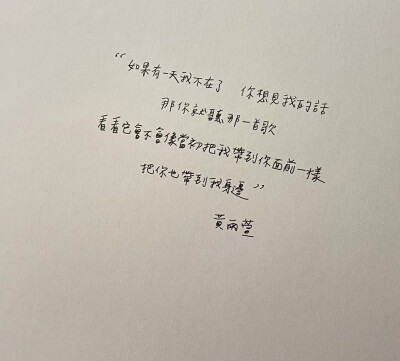 “如果有一天我不在了 你想見我的話
那你就聽那一首歌
看看它會不會像當初把我帶到你面前一樣
把你也帶到我身邊”
黃雨萱